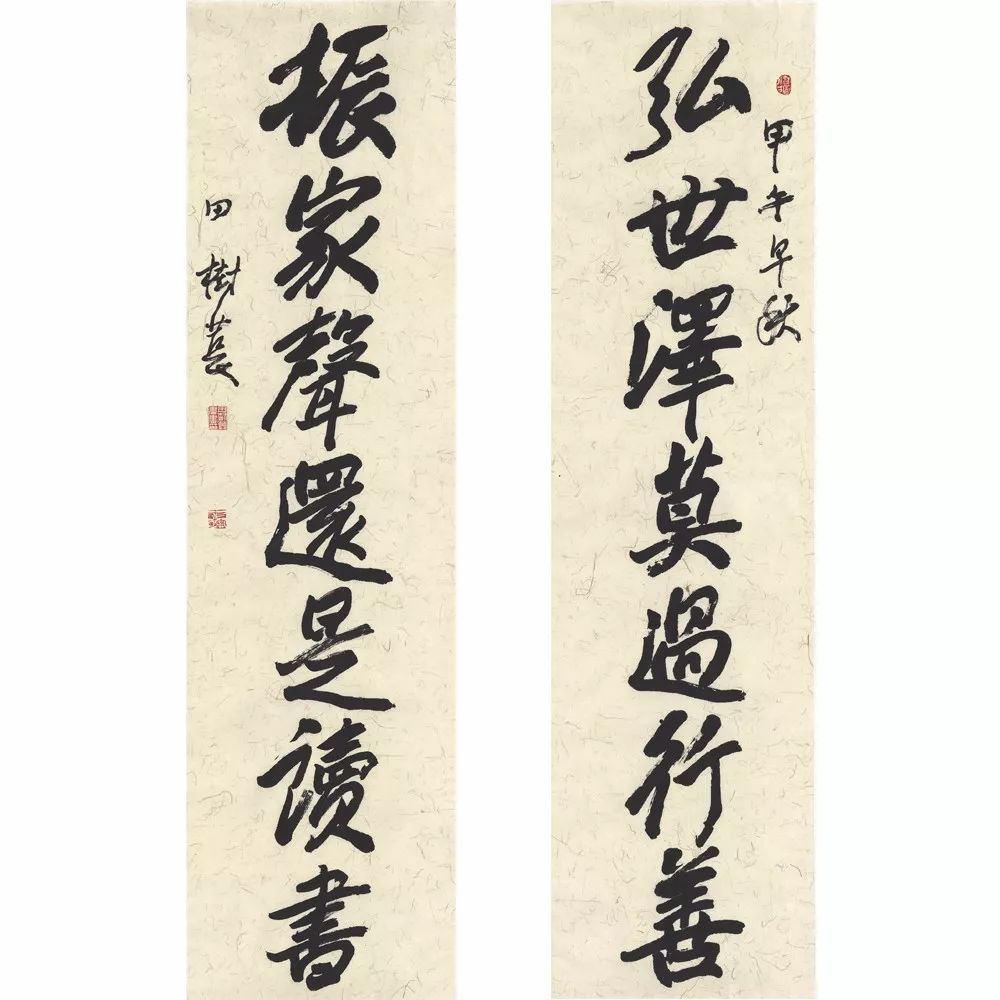 弘世澤莫過行善
甲午早秋
振家聲還是讀書
田樹萇